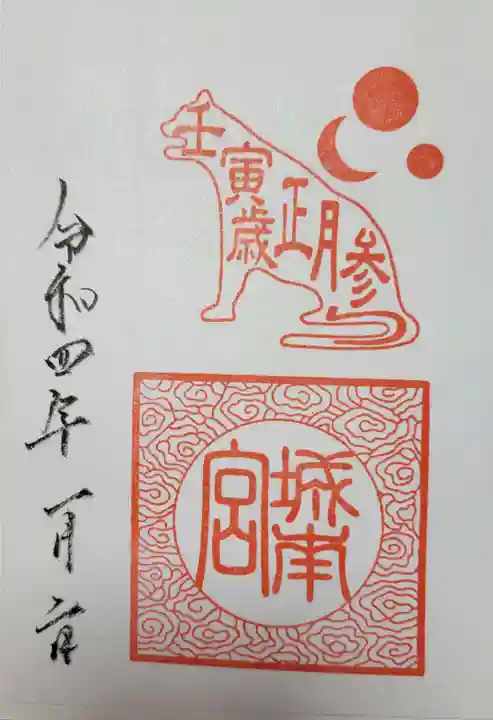 壬寅歳正月参
城南
宮
令和四年一月六日